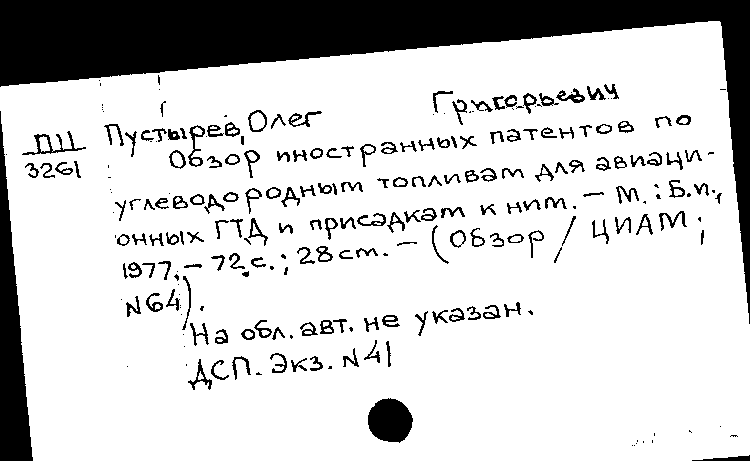 Григорьевич
П11 Пустырев, Олег
3261 Обзор иностранных патентов по
углеводородным топливам для авиаци-
онных ГТД и присадкам к ним. - М.: Б.и.,
1977. - 72.с.; 28 cm. - (Обзор / ЦИАМ;
N64).
На обл. авт. не указан.
ДСП. Экз. N41